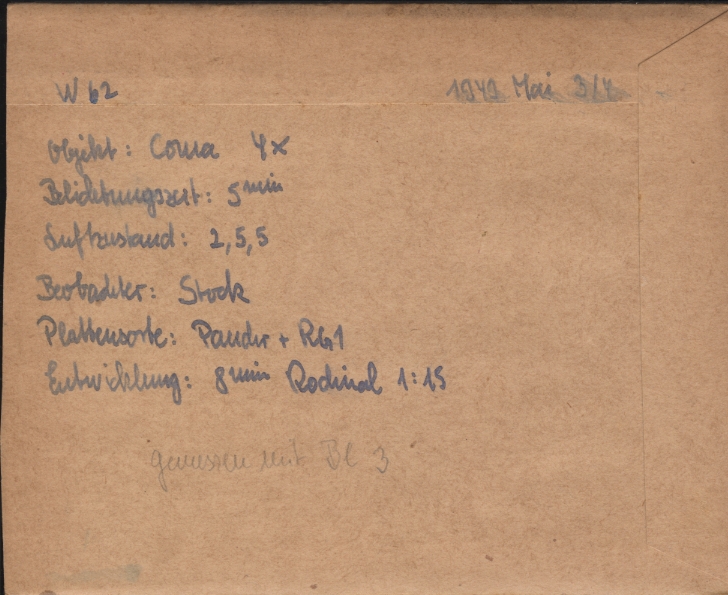 W 62 1949 Mai 3/4
Objekt: Coma 4x
Belichtungszeit: 5 min
Luftzustand: 2,5,5
Beobachter: Stock
Plattensorte: Panchr + RG1
Entwicklung: 8 min Rodinal 1:15
gemessen mit Bl 3